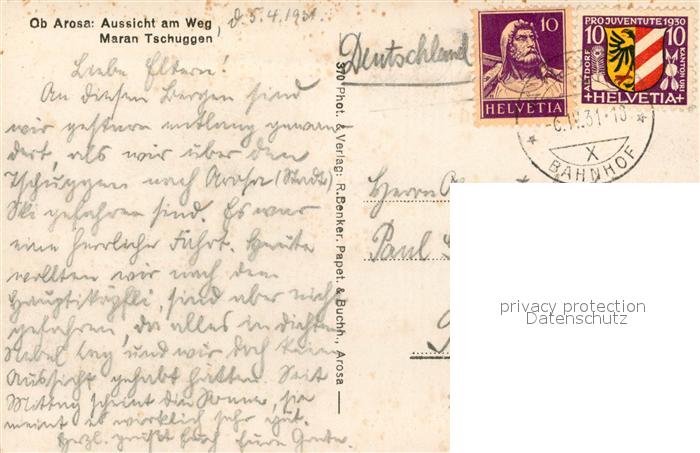 Ob Arosa: Aussicht am Weg
Maran Tschuggen, d. 5.4.1931.
Liebe Eltern!
An diesen Bergen sind
wir gestern entlang gewan
dert, als wir über den
Tschuggen nach Arosa (Stadt)
Ski gefahren sind. Es war
eine herrliche Fahrt. Heute
wollten wir nach dem
Hauptiköpfli, sind aber nicht
gefahren, da alles in dichtem
Nebel lag und wir doch keine
Aussicht gehabt hätten. Seit
Mittag scheint die Sonne, sie
meint es wirklich sehr gut.
Herzl. grüßt Euch Eure
370 Phot. & Verlag: R. Denker, Papet. & Buchh., Arosa
Deutschland
10
HELVETIA
PRO JUVENTUTE 1930
10 10
ALTDORF
KANTON URI
+HELVETIA+
31-18
X
BAHNHOF
Herrn
Paul
privacy protection
Datenschutz